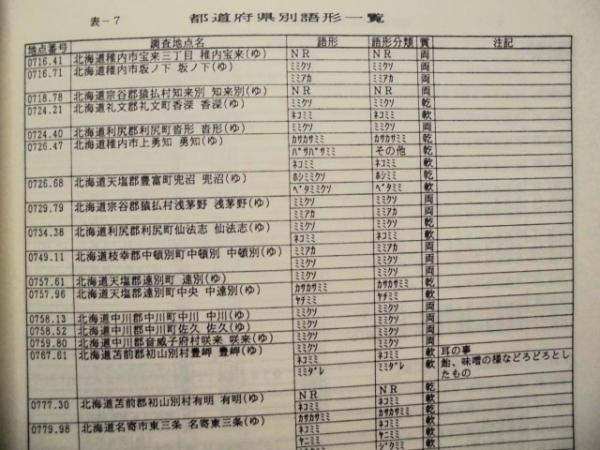 表－7 都道府県別語形一覧
地点番号 調査地点名 語形 語形分類 質 注記
0716.41 北海道稚内市宝来三丁目 稚内宝来(ゆ) NR NR 両
0716.71 北海道稚内市坂ノ下 坂ノ下(ゆ) ﾐﾐｸｿ ﾐﾐｸｿ 両
ﾐﾐｱｶ ﾐﾐｱｶ 両
0718.78 北海道宗谷郡猿払村知来別 知来別(ゆ) NR NR 両
0724.21 北海道礼文郡礼文町香深 香深(ゆ) ﾐﾐｸｿ ﾐﾐｸｿ 乾
ﾈｺﾐﾐ ﾈｺﾐﾐ 軟
0724.40 北海道利尻郡利尻町沓形 沓形(ゆ) ﾐﾐｸｿ ﾐﾐｸｿ 両
0726.47 北海道稚内市上勇知 勇知(ゆ) ｶｻｶｻﾐﾐ ｶｻｶｻﾐﾐ 乾
ﾊﾟｻﾊﾟｻﾐﾐ その他 乾
ﾈｺﾐﾐ ﾈｺﾐﾐ 軟
0726.68 北海道天塩郡豊富町兜沼 兜沼(ゆ) ﾎｼﾐﾐｸｿ ﾐﾐｸｿ 乾
ﾍﾞﾀﾐﾐｸｿ ﾍﾞﾀﾐﾐ 軟
0729.79 北海道宗谷郡猿払村浅茅野 浅茅野(ゆ) ﾐﾐｸｿ ﾐﾐｸｿ 両
ﾐﾐｱｶ ﾐﾐｱｶ 両
0734.38 北海道利尻郡利尻町仙法志 仙法志(ゆ) ﾐﾐｸｿ ﾐﾐｸｿ 乾
ﾈｺﾐﾐ ﾈｺﾐﾐ 軟
0749.11 北海道枝幸郡中頓別町中頓別 中頓別(ゆ) ﾐﾐｱｶ ﾐﾐｱｶ 両
ﾐﾐｸｿ ﾐﾐｸｿ 両
0757.61 北海道天塩郡遠別町 遠別(ゆ) ﾐﾐｸｿ ﾐﾐｸｿ 両
0757.96 北海道天塩郡遠別町中央 中遠別(ゆ) ｶｻｶｻﾐﾐ ｶｻｶｻﾐﾐ 乾
ﾔﾁﾐﾐ ﾔﾁﾐﾐ 軟
0758.13 北海道中川郡中川町中川 中川(ゆ) ﾐﾐｸｿ ﾐﾐｸｿ 両
0758.52 北海道中川郡中川町佐久 佐久(ゆ) ﾐﾐｸｿ ﾐﾐｸｿ 両
0759.80 北海道中川郡音威子府村咲来 咲来(ゆ) ﾐﾐｸｿ ﾐﾐｸｿ 両
0767.61 北海道苫前郡初山別村豊岬 豊岬(ゆ) ﾈｺﾐﾐ ﾈｺﾐﾐ 軟 耳の事
ﾐﾐﾀﾞﾚ ﾐﾐﾀﾞﾚ 軟 飴、味噌の様などろどろとし
たもの
NR NR 乾
0777.30 北海道苫前郡初山別村有明 有明(ゆ) ﾈｺﾐﾐ ﾈｺﾐﾐ 軟
ｶｻｶｻﾐﾐ ｶｻｶｻﾐﾐ 乾
0779.98 北海道名寄市東三条 名寄東三条(ゆ) ﾈｺﾐﾐ ﾈｺﾐﾐ 軟
ﾔﾆﾐﾐ ﾔﾆﾐﾐ 軟